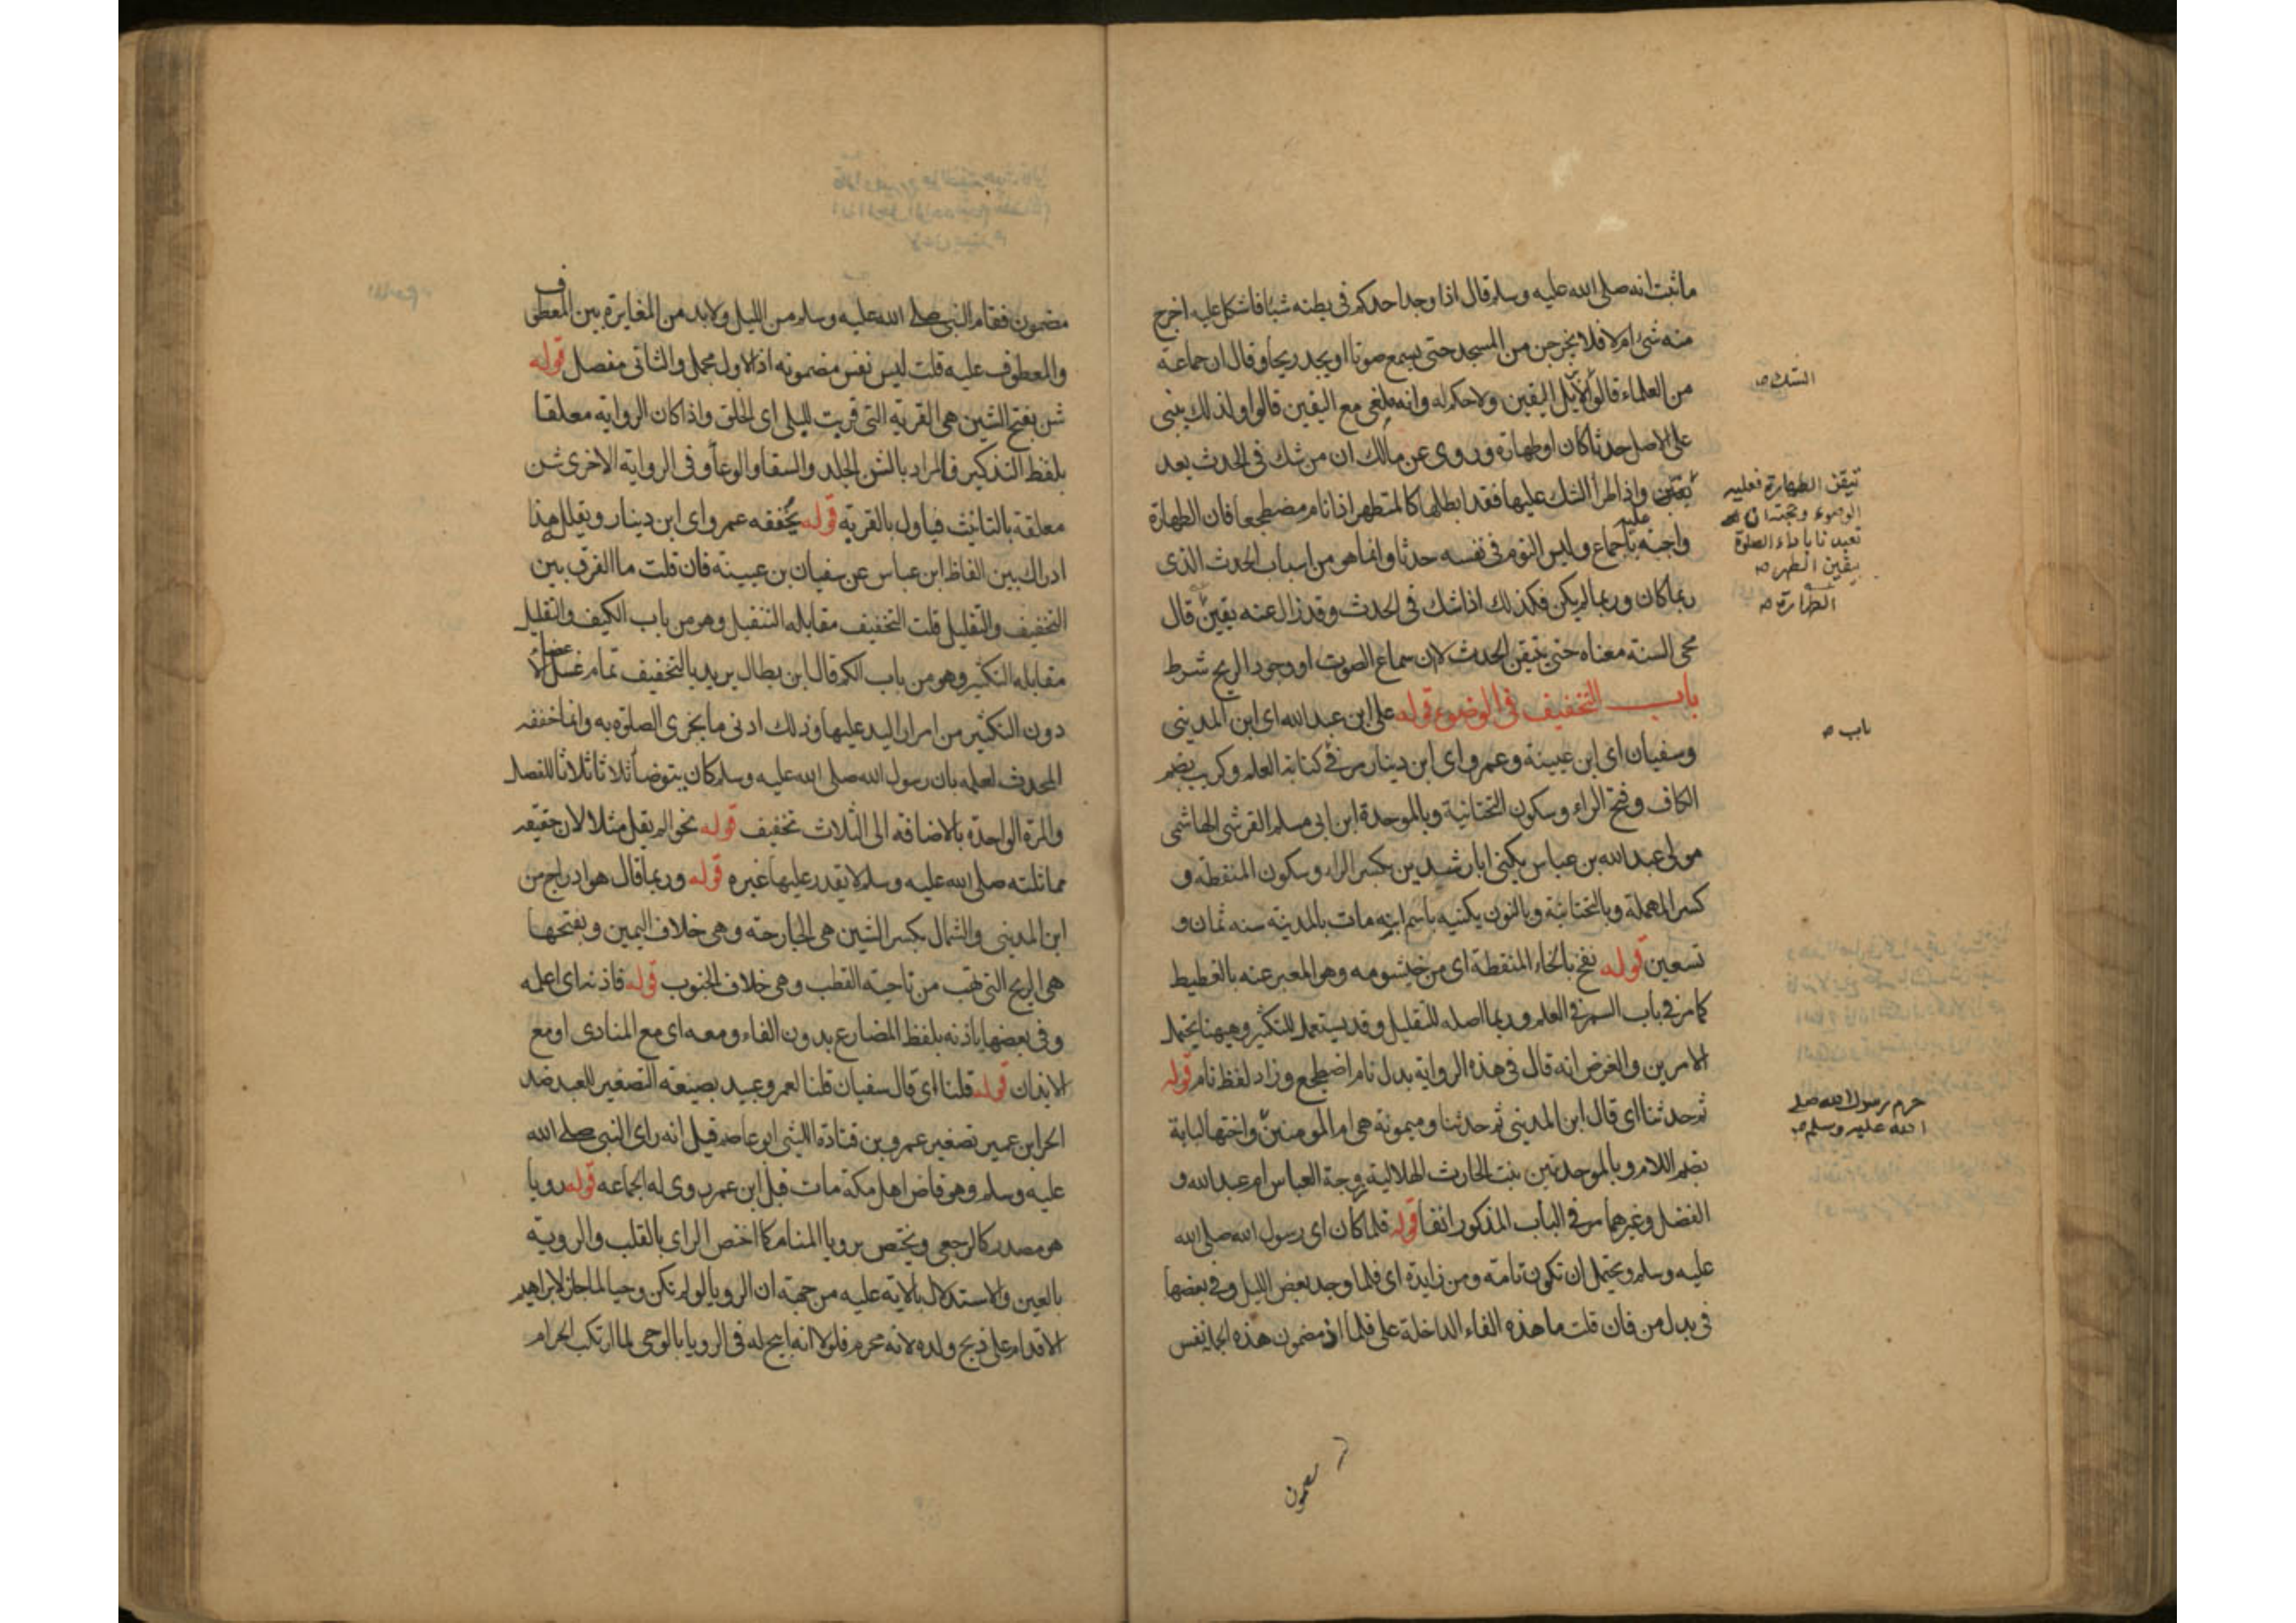 ما ثبت انه صلى الله عليه وسلم قال اذا وجد احدكم فى بطنه شيئا فاشكل عليه اخرج
منه شئ ام لا فلا يخرجن من المسجد حتى يسمع صوتا او يجد ريحا وقال ان جماعة
من العلماء قالوا لا يزيل اليقين ولا حكم له وانه ملغى مع اليقين قالوا ولذلك يبنى
على الاصل حدثا كان او طهارة وروى عن مالك ان من شك فى الحدث بعد
تيقن واذا طرأ الشك عليها فقد ابطلها كالمتطهر اذا نام مضطجعا فان الطهارة
واجبة عليه باجماع وليس النوم فى نفسه حدثا وانما هو من اسباب الحدث الذى
ربما كان وربما لم يكن فكذلك اذا شك فى الحدث وقد زال عنه يقين قال
محى السنة معناه حتى يتيقن الحدث لا ان سماع الصوت او وجود الريح شرط
باب التخفيف فى الوضوء قوله على ابن عبد الله اى ابن المدينى
وسفيان اى ابن عيينة وعمرو اى ابن دينار مر فى كتابة العلم وكريب بضم
الكاف وفتح الراء وسكون التحتانية وبالموحدة ابن ابى مسلم القرشى الهاشمى
مولى عبد الله بن عباس يكنى ابا رشدين بكسر الراء وسكون المنقطة و
كسر المهملة وبالتحتانية وبالنون يكنيه باسم ابنه مات بالمدينة سنه ثمان و
تسعين قوله نفخ بالخاء المنقطة اى من خيشومه وهو المعبر عنه بالغطيط
كما مر فى باب السمر فى العلم وربما اصله للتقليل وقد يستعمل للتكثير وهيهنا يحتمل
الامرين والغرض انه قال فى هذه الرواية بدل نام اضطجع وزاد لفظ نام قوله
ثم حدثنا اى قال ابن المدينى ثم حدثنا وميمونة هى ام المومنين واختها لبابة
بضم اللام وبالموحدتين بنت الحارث الهلالية زوجة العباس ام عبد الله و
الفضل وغيرهما مر فى الباب المذكور انفا قوله فلما كان اى رسول الله صلى الله
عليه وسلم ويحتمل ان تكون تامة ومن زايدة اى فلما وجد بعض الليل وفى بعضها
فى بدل من فان قلت ما هذه الفاء الداخلة على فلما اذ مضمون هذه الجملة نفس
الشك
تيقن الطهارة فعليه
الوضوء
تعبدنا باداء الصلوة
بيقين الطهر
الطهارة
باب
حرم رسول الله صلى
الله عليه وسلم
مضمون
مضمون فقام النبى صلى الله عليه وسلم من الليل ولابد من المغايرة بين المعطوف
والمعطوف عليه قلت ليس نفس مضمونه اذ الاول مجمل والثانى مفصل قوله
شن بفتح الشين هى القربة التى قربت للبلى اى الخلق واذا كان الرواية معلقا
بلفظ التذكير فالمراد بالشن الجلد والسقا والوعأ وفى الرواية الاخرى شن
معلقة بالتانيث فياول بالقربة قوله يخففه عمرو اى ابن دينار ويقلله هذا
ادراك بين الفاظ ابن عباس عن سفيان بن عيينة فان قلت ما الفرق بين
التخفيف والتقليل قلت التخفيف مقابله التثقيل وهو من باب الكيف والتقليل
مقابله التكثير وهو من باب الكم قال ابن بطال يريد بالتخفيف تمام غسل الاعضاء
دون التكثير من امرار اليد عليها وذلك ادنى ما يجزى الصلوة به وانما خففه
المحدث لعلمه بان رسول الله صلى الله عليه وسلم كان يتوضأ ثلاثا ثلاثا للفضل
والمرة الواحدة بالاضافة الى الثلاث تخفيف قوله نحوا لم يقل مثلا لان حقيقة
مماثلته صلى الله عليه وسلم لا يقدر عليها غيره قوله وربما قال هو ادراج من
ابن المدينى والشمال بكسر الشين هى الجارحة وهى خلاف اليمين وبفتحها
هى الريح التى تهب من ناحية القطب وهى خلاف الجنوب قوله فاذنه اى اعلمه
وفى بعضها ياذنه بلفظ المضارع بدون الفاء ومعه اى مع المنادى او مع
الايذان قوله قلنا اى قال سفيان قلنا لعمرو عبيد بصيغة التصغير للعبد ضد
الحر ابن عمير تصغير عمرو بن قتادة الليثى ابو عاصم قيل انه راى النبى صلى الله
عليه وسلم وهو قاض اهل مكة مات قبل ابن عمر روى له الجماعه قوله رويا
هو مصدر كالرجعى ويختص برويا المنام كما اختص الراى بالقلب والروية
بالعين والاستدلال بالاية عليه من جهة ان الرويا لو لم تكن وحيا لما جاز لابراهيم
الاقدام على ذبح ولده لانه محرم فلولا انه ابيح له فى الرويا بالوحى لما ارتكب الحرام